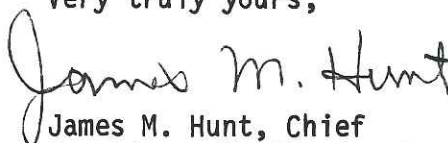 Very truly yours,
James M. Hunt
James M. Hunt, Chief